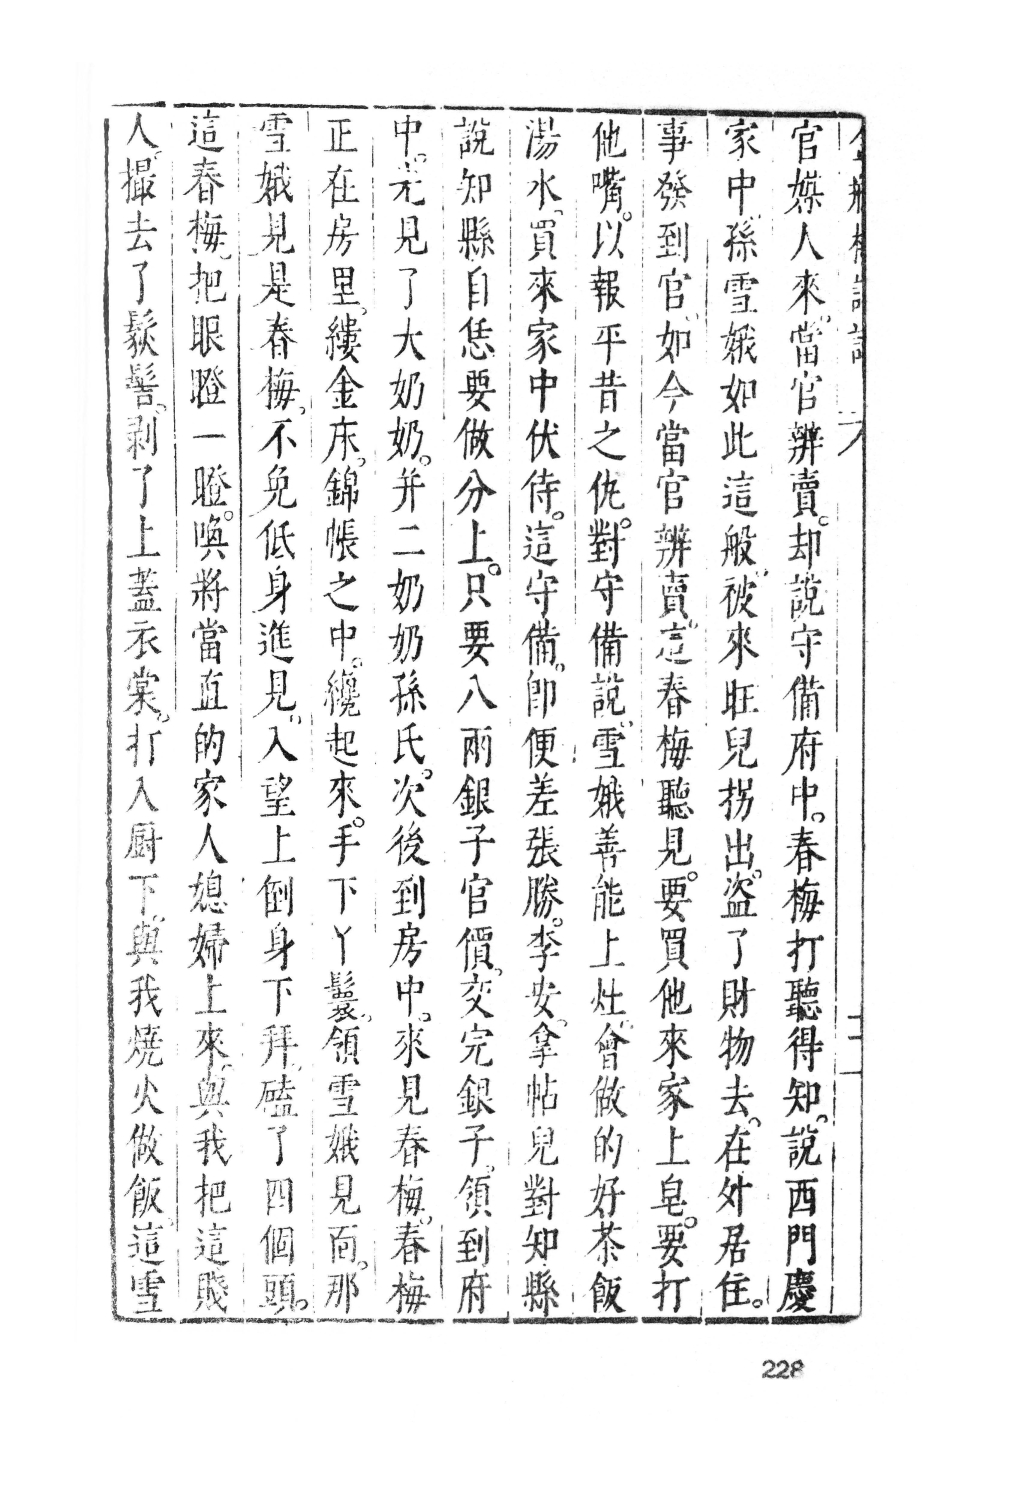 官媒人來。當官辨賣。却說守備府中。春梅打聽得知。說西門慶
家中孫雪娥如此這般。被來旺兒拐出。盗了財物去。在外居住。
事發到官。如今當官辨賣。這春梅聽見。要買他來家上皂。要打
他嘴。以報平昔之仇。對守備說。雪娥善能上灶。會做的好茶飯
湯水。買來家中伏侍。這守備。卽便差張勝。李安。拿帖兒對知縣
說。知縣自恁要做分上。只要八兩銀子官價。交完銀子。領到府
中。先見了大奶奶。并二奶奶孫氏。次後到房中。來見春梅。春梅
正在房里。縷金床。錦帳之中。纔起來。手下丫鬟。領雪娥見面。那
雪娥見是春梅。不免低身進見。入望上倒身下拜。磕了四個頭。
這春梅。把眼瞪一瞪。喚將當直的家人媳婦上來。與我把這賤
人。撮去了䯼髻。剥了上蓋衣裳。打入厨下。與我燒火做飯。這雪
228